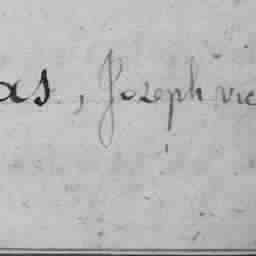 as, Joseph vic